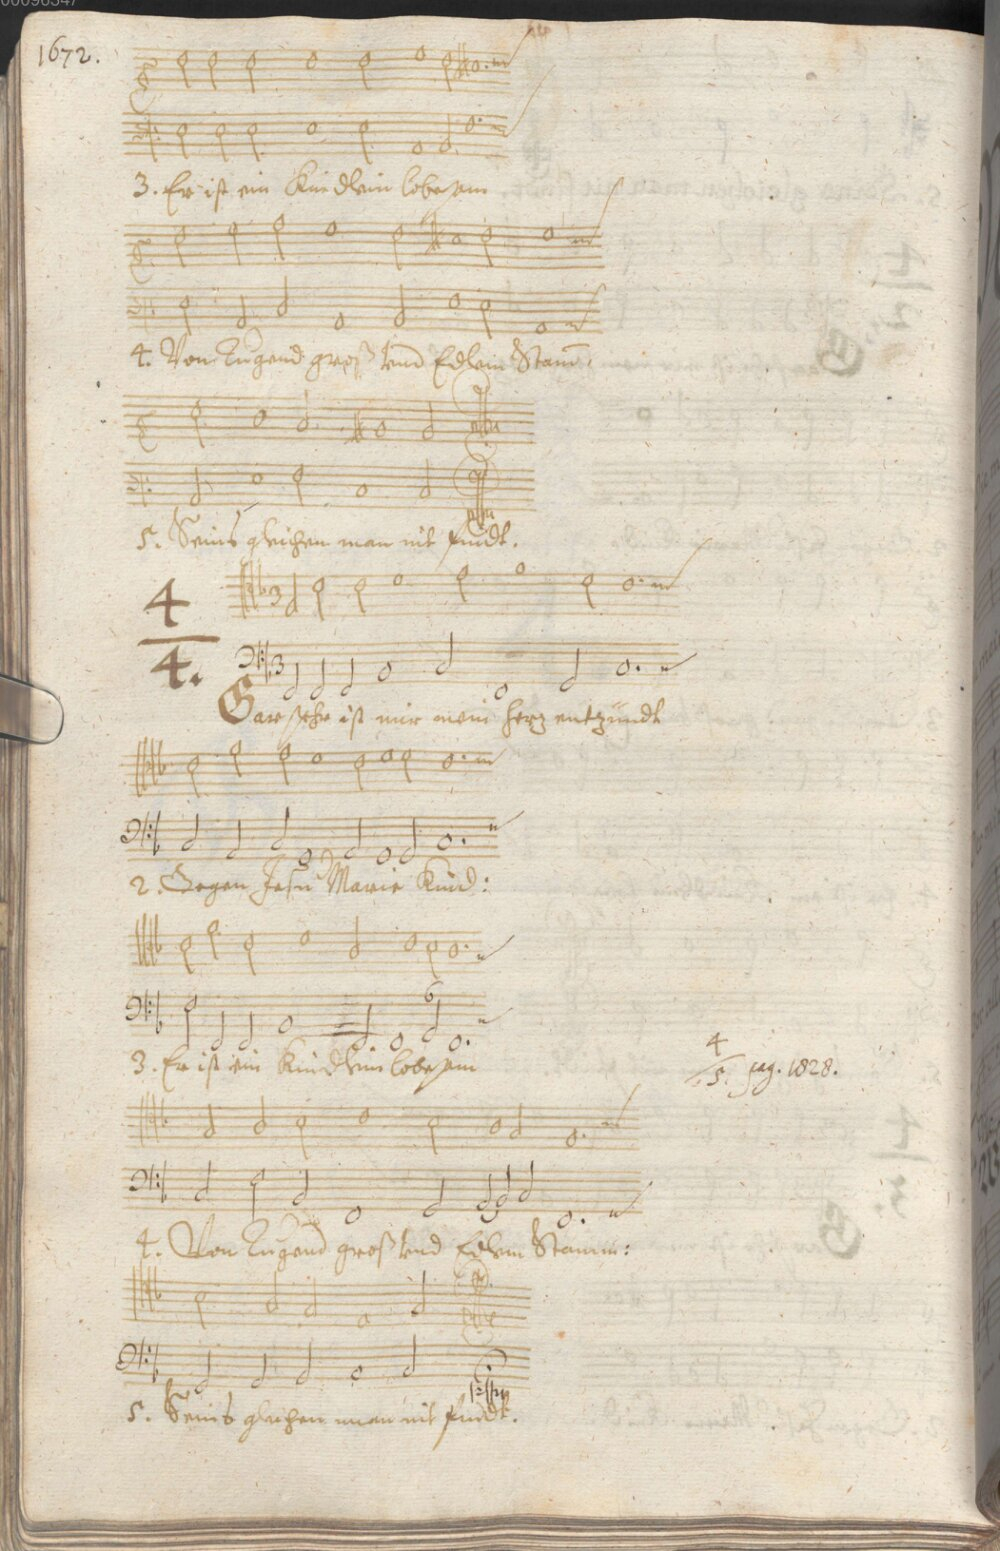 1672.
3. Er ist ein Kindlein lobesam
4. Von Tugend groß vnd Edlem Stam̄
5. Seins gleichen man nit findt.
4
4.
3
3
Gar sehr ist mir mein herz entzündt
2. Gegen Jesu Marie Kind:
6
3. Er ist ein Kindlein lobesam
4
5. pag. 1828.
4. Von Tugend groß vnd Edlem Stamm:
5. Seins gleichen man nit findt.